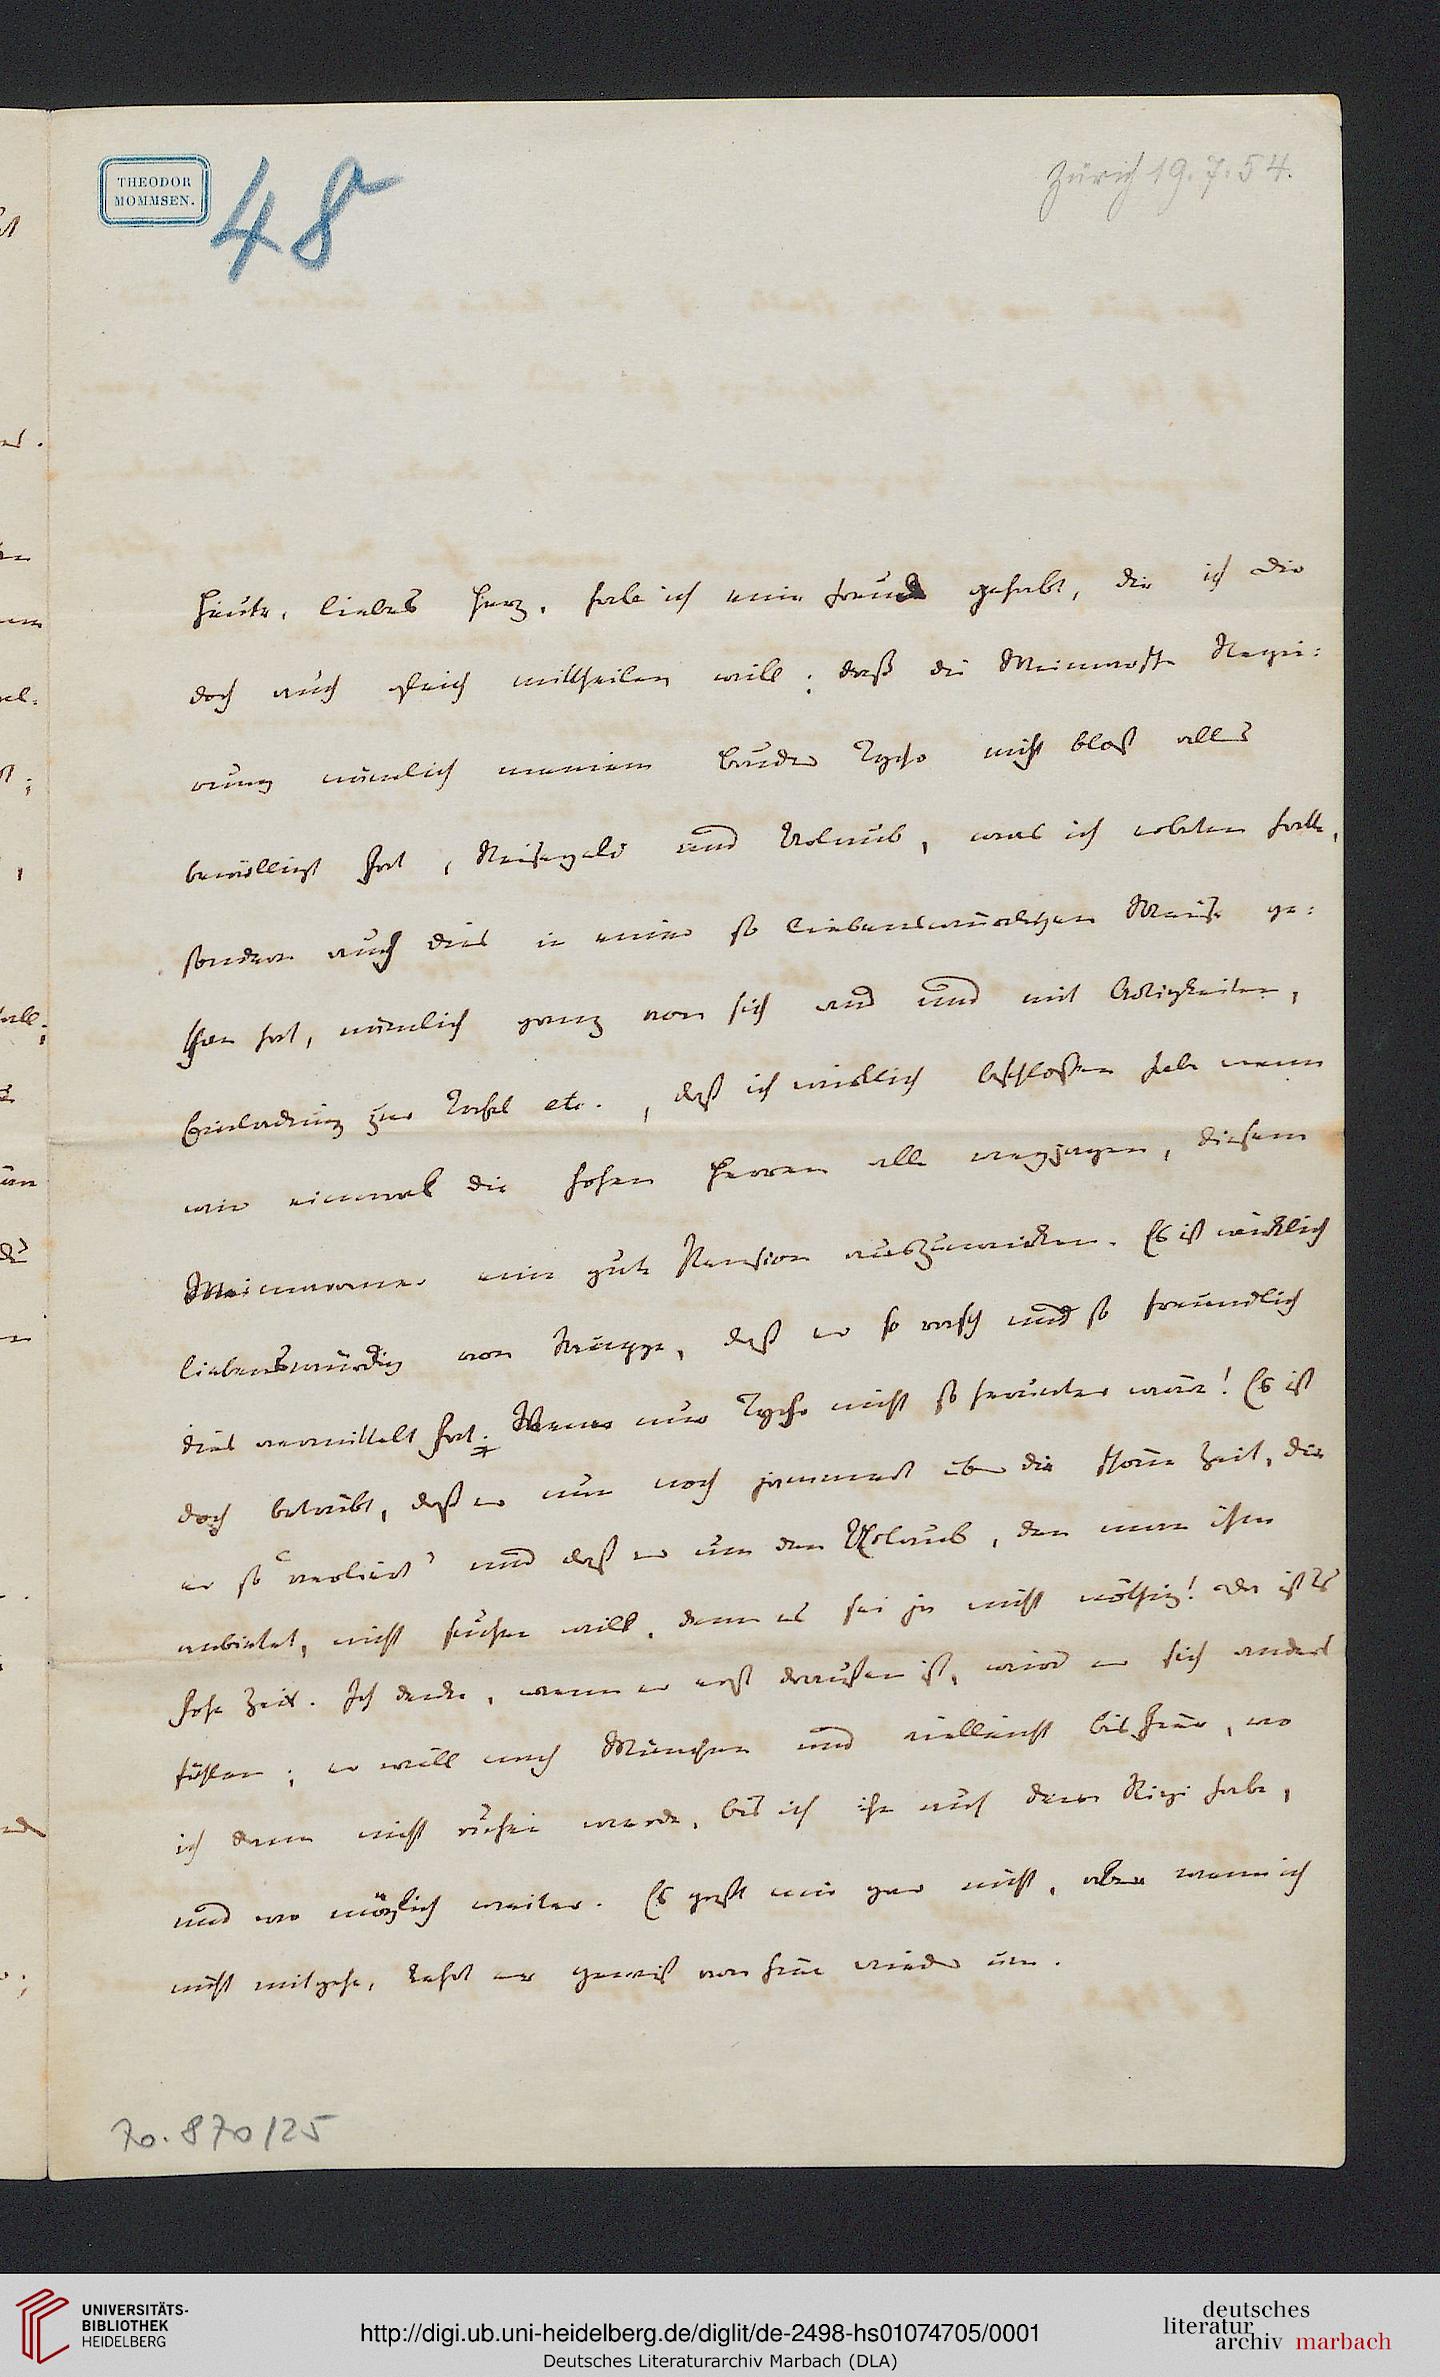 THEODOR
MOMMSEN.
48
Zürich 19. 7. 54.
Heute, liebes Herz, habe ich eine Freude gehabt, die ich Dir
doch auch gleich mittheilen will: daß die Weimarsche Regie-
rung nämlich meinem Bruder Tycho nicht bloß alles
bewilligt hat, Reisegeld und Urlaub, was ich erbeten hatte,
sondern auch dies in einer so liebenswürdigen Weise ge-
than hat, nämlich ganz von sich aus und mit Artigkeiten,
Einladung zur Tafel etc., daß ich wirklich beschlossen habe wenn
wir einmal die hohen Herren alle wegjagen, diesem
Weimaraner eine gute Pension auszuwirken. Es ist wirklich
liebenswürdig von, daß er so rasch und so freundlich
dies vermittelt hat. Wenn nur Tycho nicht so herunter wäre! Es ist
doch betrübt, daß er nun noch jammert über die schöne Zeit, die
er so "verliert" und daß er um den Urlaub, den man ihm
anbietet, nicht suchen will, denn es sei ja nicht nöthig! Da ist es
hohe Zeit. Ich denke, wenn er erst draußen ist, wird er sich anders
fühlen; er will nach München und vielleicht bis hier, wo
ich dann nicht ruhen werde, bis ich ihn auf dem Rigi habe,
und wo möglich weiter. Es paßt mir gar nicht, aber wenn ich
nicht mitgehe, kehrt er gewiß von hier wieder um.
70.870/25
UNIVERSITÄTS-
BIBLIOTHEK
HEIDELBERG
http://digi.ub.uni-heidelberg.de/diglit/de-2498-hs01074705/0001
Deutsches Literaturarchiv Marbach (DLA)
deutsches
literatur
archiv marbach